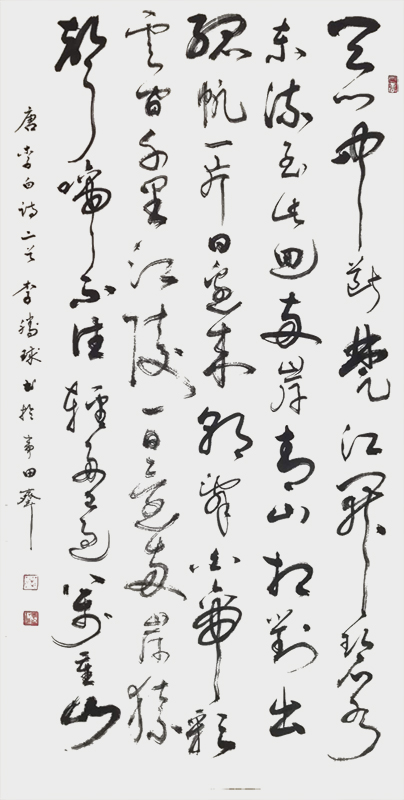 天门中断楚江開碧水
東流至此回两岸青山相對出
孤帆一片日邊来朝辞白帝彩
雲间千里江陵一日還两岸猿
聲啼不住輕舟已過萬重山
唐李白诗二首 李 球书於 田齋